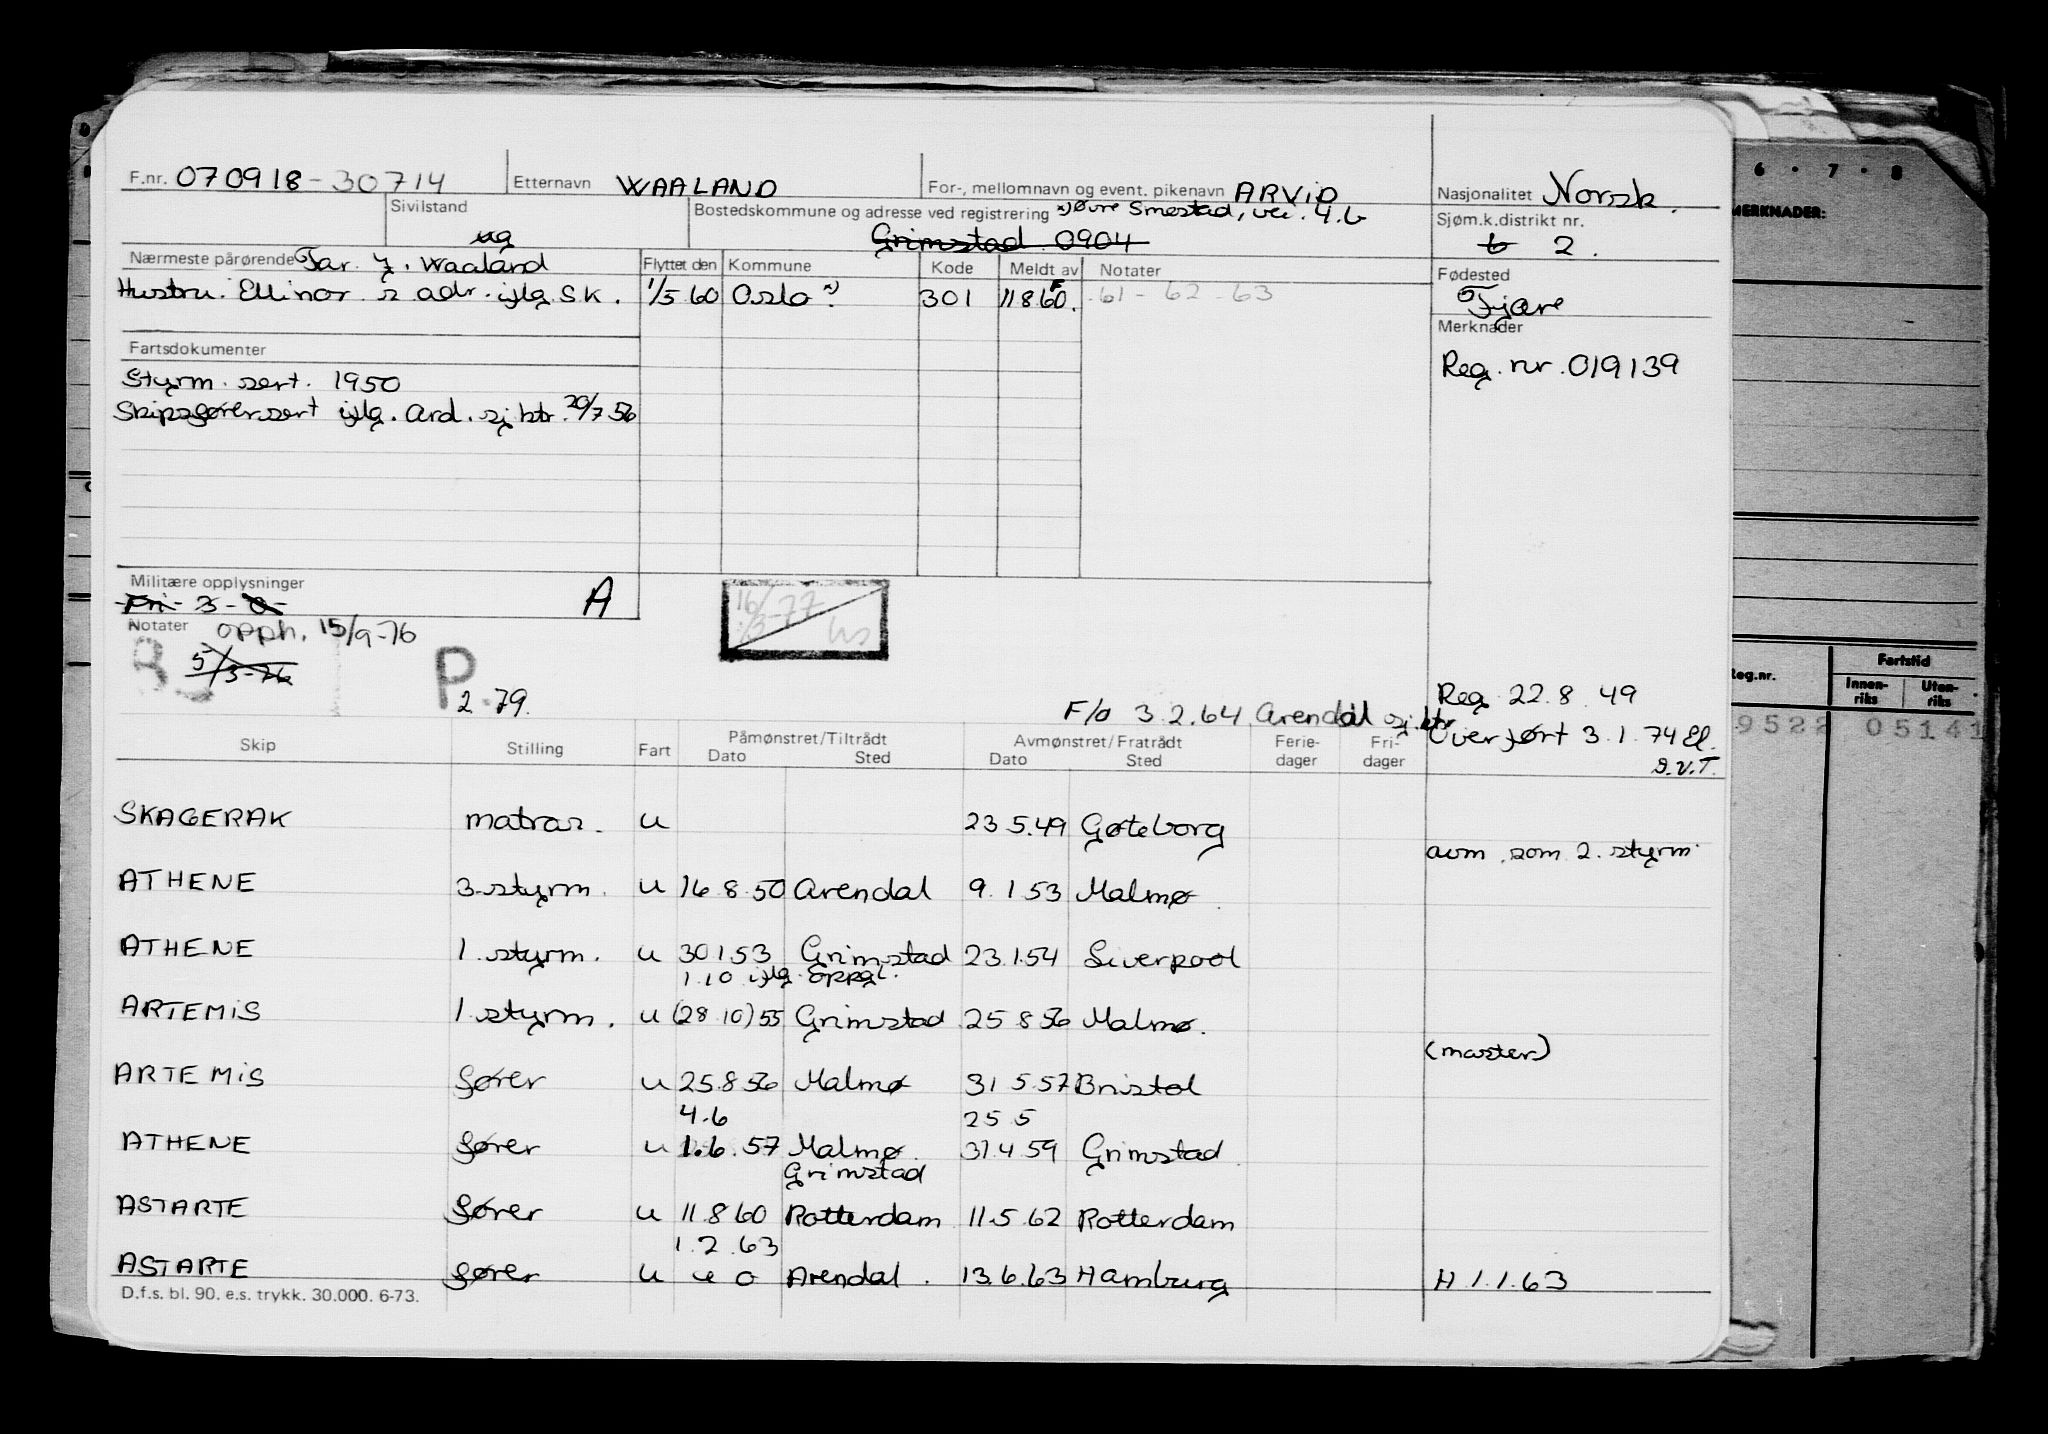 F.nr. 070918-30714 Etternavn WAALAND For-, mellomnavn og event. pikenavn ARVID Nasjonalitet Norsk.
Sivilstand ug Bostedskommune og adresse ved registrering x) Øvre Smestad, vei. 4.b Sjøm.k.distrikt nr.
Grimstad 0904 6 2.
Nærmeste pårørende Far. J. Waaland Flyttet den Kommune Kode Meldt av Notater Fødested
Hustru. Ellinor s adr. iflg. S.K. 1/5 60 Oslo x) 301 11860. 61 - 62 - 63 Fjære
Merknader
Fartsdokumenter Reg. nr. 019139
Styrm. sert. 1950
Skipsførersert iflg. Ard. sj.ktr. 20/7 56
Militære opplysninger A
Fri - 3 - 0 - 16/3-77
Notater opph. 15/9-76
5/3-76 P
2-79.
Reg 22.8.49
F/o 3.2.64 Arendal sj.ktr Overført 3.1.74 El.
D.V.T.
Skip Stilling Fart Påmønstret/Tiltrådt Dato Sted Avmønstret/Fratrådt Dato Sted Ferie-dager Fri-dager
SKAGERAK matros. u 23 5.49 Gøteborg
avm. som 2. styrm.
ATHENE 3.styrm. u 16 8 50 Arendal 9.1.53 Malmø
ATHENE 1.styrm. u 30153 Grimstad 23.1.54 Liverpool
1.10 iflg. oppg.
ARTEMIS 1.styrm. u (28.10)55 Grimstad 25 8 56 Malmø.
(master)
ARTEMIS fører u 25.8.56 Malmø 31 5.57 Bristol
4.6 25 5
ATHENE fører u 1.6.57 Malmø 31.4 59 Grimstad
Grimstad
ASTARTE fører u 11 8 60 Rotterdam 11.5.62 Rotterdam
1.2.63
ASTARTE fører u u o Arendal. 13.6.63 Hamburg H 1.1.63
D.f.s. bl. 90. e.s. trykk. 30.000. 6-73.
6 · 7 · 8
MERKNADER:
Reg.nr. Fartstid
Innen-riks Uten-riks
9522 05141